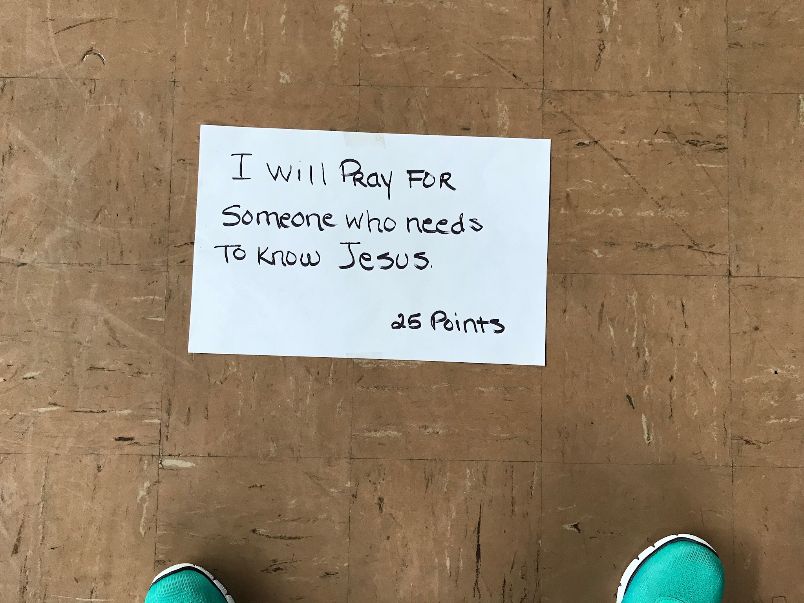 I will Pray FOR
Someone who needs
To know Jesus.
25 Points